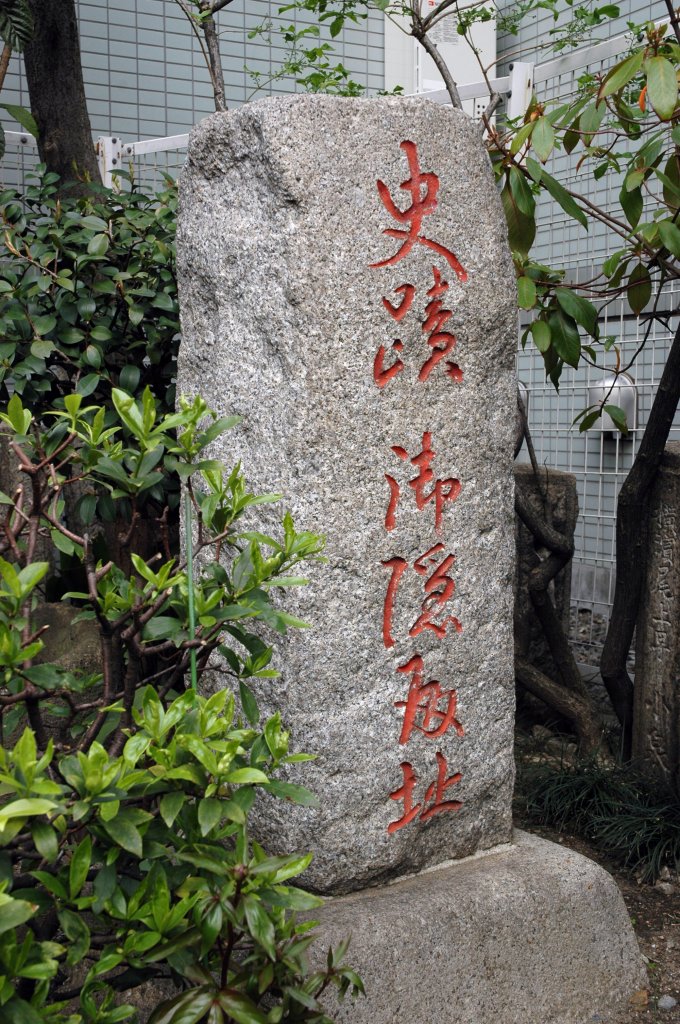 史蹟 御隠殿址